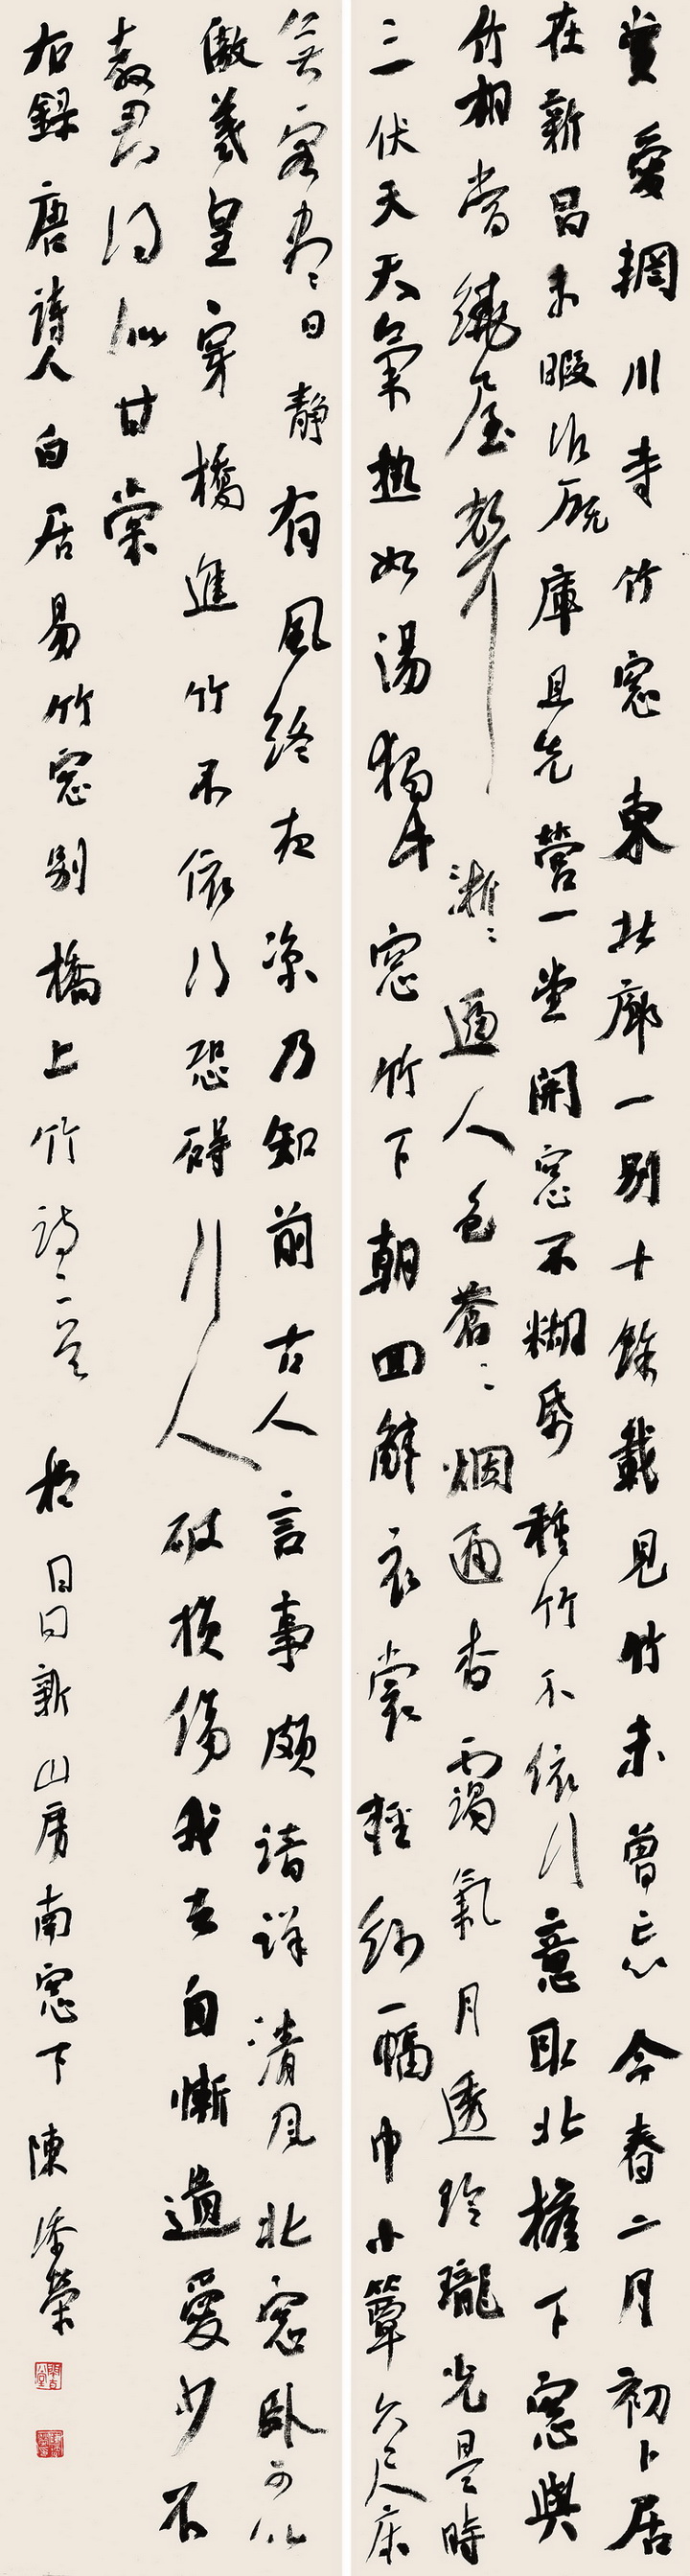 嘗愛輞川寺竹窓東北廊一別十餘載見竹未曾忘今春二月初卜居
在新昌未暇作廐庫且先營一堂開窓不糊帋種竹不依行意取北檐下窓與
竹相當繞屋聲淅〻逼人色蒼〻烟通杳靄氣月透玲瓏光是時
三伏天天氣熱如湯獨此窓竹下朝回解衣裳輕紗一幅巾小簟六尺床
無客盡〻日靜有風終夜凉乃知前古人言事頗諳詳清風北窓臥可以
傲羲皇穿橋進竹不依行恐碍行人破損傷我去自慚遺愛少不
教君得似甘棠
右錄唐詩人白居易竹窓別橋上竹詩二首 於日日新山房南窓下陳榮